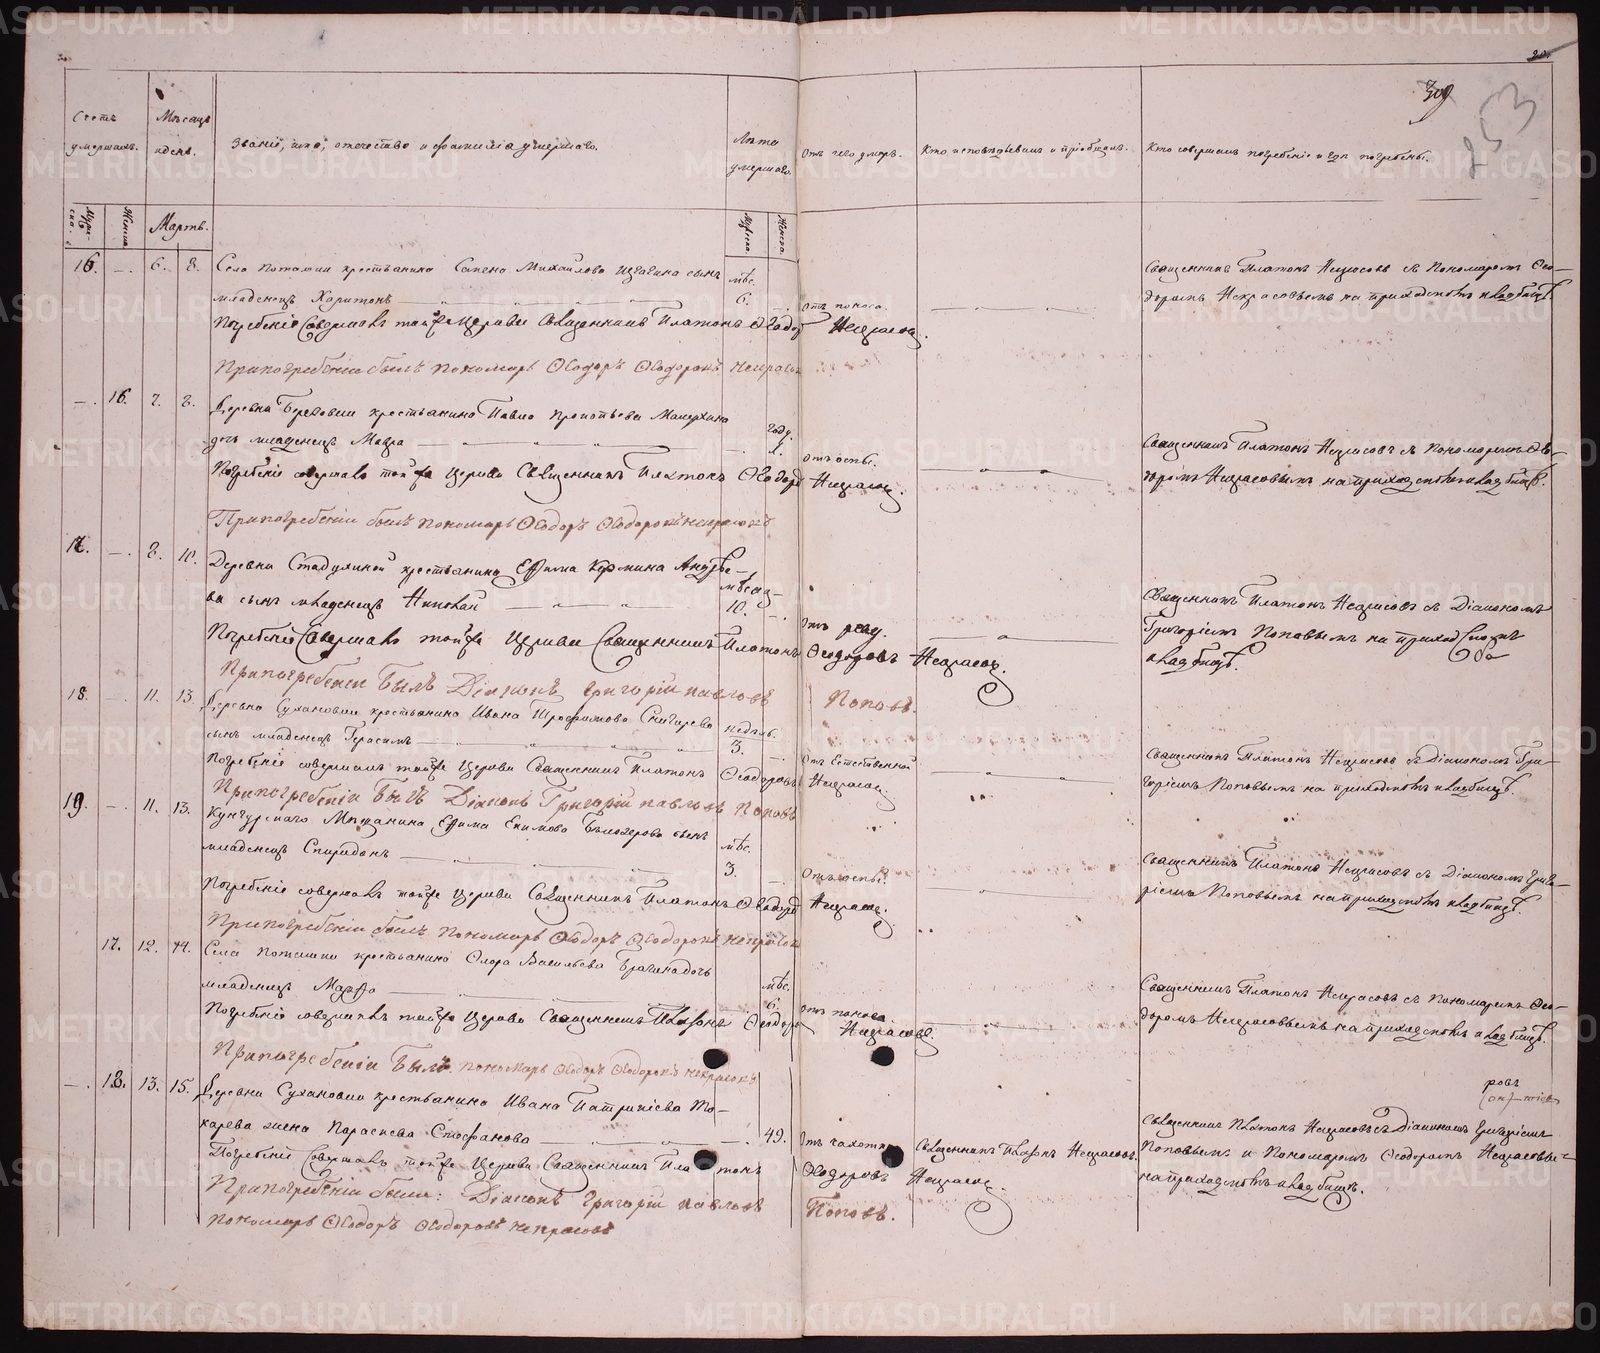 METRIKI.GASO-URAL.RU
309
253
Счетъ умершихъ.
Мѣсяцъ и день.
Званіе, имя, отечество и фамилія умершаго.
Лѣта умершаго.
Отъ чего умеръ.
Кто исповѣдывалъ и пріобщалъ.
Кто совершалъ погребеніе и гдѣ погребены.
Мартъ.
16. — 6. 8. Села Поташки крестьянина Михайлова сынъ мѣс.
младенецъ Харитонъ 6. отъ поноса.
Священникъ Платонъ Некрасовъ съ Пономаремъ Ѳео-
доромъ Некрасовымъ на приходскомъ кладбищѣ.
Погребеніе совершалъ тойже церкви Священникъ Платонъ Ѳеодор Некрасов.
При погребеніи былъ пономарь Ѳеодоръ Ѳеодоровъ Некрасовъ
— 16. 7. 8. Деревни крестьянина Павла
дочь младенецъ Мавра году. 1. отъ оспы.
Священникъ Платонъ Некрасовъ съ Пономаремъ Ѳео-
доромъ Некрасовымъ на приходскомъ кладбищѣ.
Погребеніе совершалъ тойже церкви Священникъ Платонъ Ѳеодор Некрасов.
При погребеніи былъ пономарь Ѳеодоръ Ѳеодоровъ Некрасовъ
17. — 8. 10. Деревни крестьянина Ефима Андрее-
ва сынъ младенецъ Николай мѣсяц. 10. Отъ
Священникъ Платонъ Некрасовъ съ Діакономъ
Григоріемъ Поповымъ на приходскомъ
кладбищѣ.
Погребеніе совершалъ тойже церкви Священникъ Платонъ Ѳеодоровъ Некрасов.
При погребеніи былъ Діаконъ Григорій Павловъ Поповъ.
18. — 11. 13. Деревни Сухановки крестьянина Ивана Трофимова Снигирева недѣль.
сынъ младенецъ Герасимъ 3. Отъ Естественной
Священникъ Платонъ Некрасовъ съ Діакономъ Гри-
горіемъ Поповымъ на приходскомъ кладбищѣ.
Погребеніе совершалъ тойже церкви Священникъ Платонъ Ѳеодоровъ Некрасов.
При погребеніи былъ Діаконъ Григорій Павловъ Поповъ
19. — 11. 13. Кунгурскаго Мѣщанина Ефима Екимова Бѣлозерова сынъ мѣс.
младенецъ Спиридонъ 3. Отъ оспы.
Священникъ Платонъ Некрасовъ съ Діакономъ Григо-
ріемъ Поповымъ на приходскомъ кладбищѣ.
Погребеніе совершалъ тойже церкви Священникъ Платонъ Ѳеодор Некрасов.
При погребеніи былъ пономарь Ѳеодоръ Ѳеодоровъ Некрасовъ
17. 12. 14. Села Поташки крестьянина Флора Васильева дочь
младенецъ Марфа мѣс. 6. отъ поноса
Священникъ Платонъ Некрасовъ съ Пономаремъ Ѳео-
доромъ Некрасовымъ на приходскомъ кладбищѣ.
Погребеніе совершалъ тойже церкви Священникъ Платонъ Ѳеодоров Некрасовъ.
При погребеніи былъ пономарь Ѳеодоръ Ѳеодоровъ Некрасовъ
— 18. 13. 15. Деревни Сухановки крестьянина Ивана Патрикіева То-
карева жена Параскева Стефанова 49. Отъ чахотки
Священникъ Платонъ Некрасовъ.
Священникъ Платонъ Некрасовъ съ Діакономъ Григоріемъ
Поповымъ и Пономаремъ Ѳеодоромъ Некрасовы-
на приходскомъ кладбищѣ.
Погребеніе совершалъ тойже церкви Священникъ Платонъ Ѳеодоровъ Некрасов.
При погребеніи были: Діаконъ Григорій Павловъ Поповъ.
пономарь Ѳеодоръ Ѳеодоровъ Некрасовъ